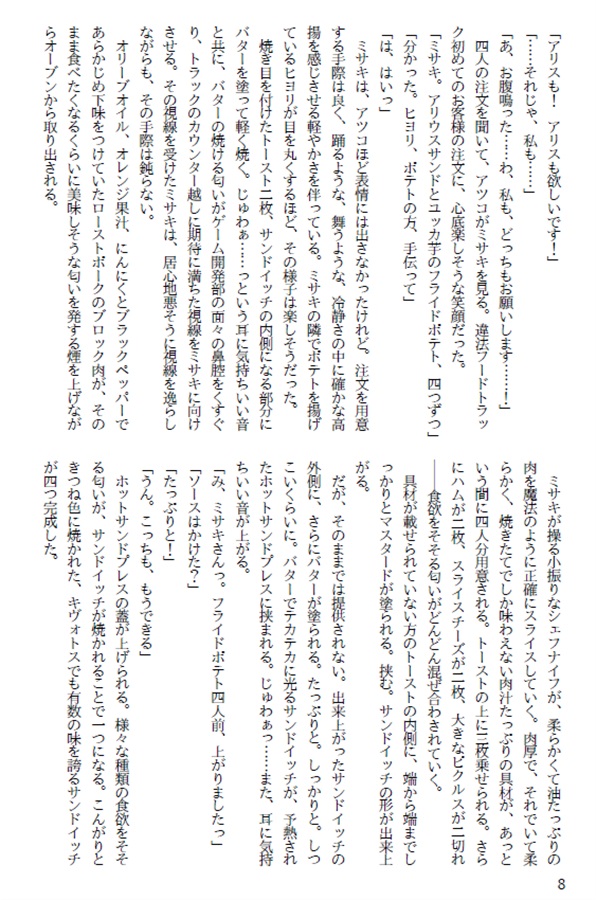 「アリスも！　アリスも欲しいです！」
「……それじゃ、私も……」
「あ、お腹鳴った……わ、私も、どっちもお願いします……！」
　四人の注文を聞いて、アツコがミサキを見る。違法フードトラッ
ク初めてのお客様の注文に、心底楽しそうな笑顔だった。
「ミサキ。アリウスサンドとユッカ芋のフライドポテト、四つずつ」
「分かった。ヒヨリ、ポテトの方、手伝って」
「は、はいっ」
　ミサキは、アツコほど表情には出さなかったけれど。注文を用意
する手際は良く、踊るような、舞うような、冷静さの中に確かな高
揚を感じさせる軽やかさを伴っている。ミサキの隣でポテトを揚げ
ているヒヨリが目を丸くするほど、その様子は楽しそうだった。
　焼き目を付けたトースト二枚、サンドイッチの内側になる部分に
バターを塗って軽く焼く。じゅわぁ……っという耳に気持ちいい音
と共に、バターの焼ける匂いがゲーム開発部の面々の鼻腔をくすぐ
り、トラックのカウンター越しに期待に満ちた視線をミサキに向け
させる。その視線を受けたミサキは、居心地悪そうに視線を逸らし
ながらも、その手際は鈍らない。
　オリーブオイル、オレンジ果汁、にんにくとブラックペッパーで
あらかじめ下味をつけていたローストポークのブロック肉が、その
まま食べたくなるくらいに美味しそうな匂いを発する煙を上げなが
らオーブンから取り出される。
　ミサキが操る小振りなシェフナイフが、柔らかくて油たっぷりの
肉を魔法のように正確にスライスしていく。肉厚で、それでいて柔
らかく、焼きたてでしか味わえない肉汁たっぷりの具材が、あっと
いう間に四人分用意される。トーストの上に三枚乗せられる。さら
にハムが二枚、スライスチーズが二枚、大きなピクルスが二切れ
――食欲をそそる匂いがどんどん混ぜ合わされていく。
　具材が載せられていない方のトーストの内側に、端から端までし
っかりとマスタードが塗られる。挟む。サンドイッチの形が出来上
がる。
　だが、そのままでは提供されない。出来上がったサンドイッチの
外側に、さらにバターが塗られる。たっぷりと。しっかりと。しつ
こいくらいに。バターでテカテカに光るサンドイッチが、予熱され
たホットサンドプレスに挟まれる。じゅわぁっ……また、耳に気持
ちいい音が上がる。
「み、ミサキさんっ。フライドポテト四人前、上がりましたっ」
「ソースはかけた？」
「たっぷりと！」
「うん。こっちも、もうできる」
　ホットサンドプレスの蓋が上げられる。様々な種類の食欲をそそ
る匂いが、サンドイッチが焼かれることで一つになる。こんがりと
きつね色に焼かれた、キヴォトスでも有数の味を誇るサンドイッチ
が四つ完成した。
8